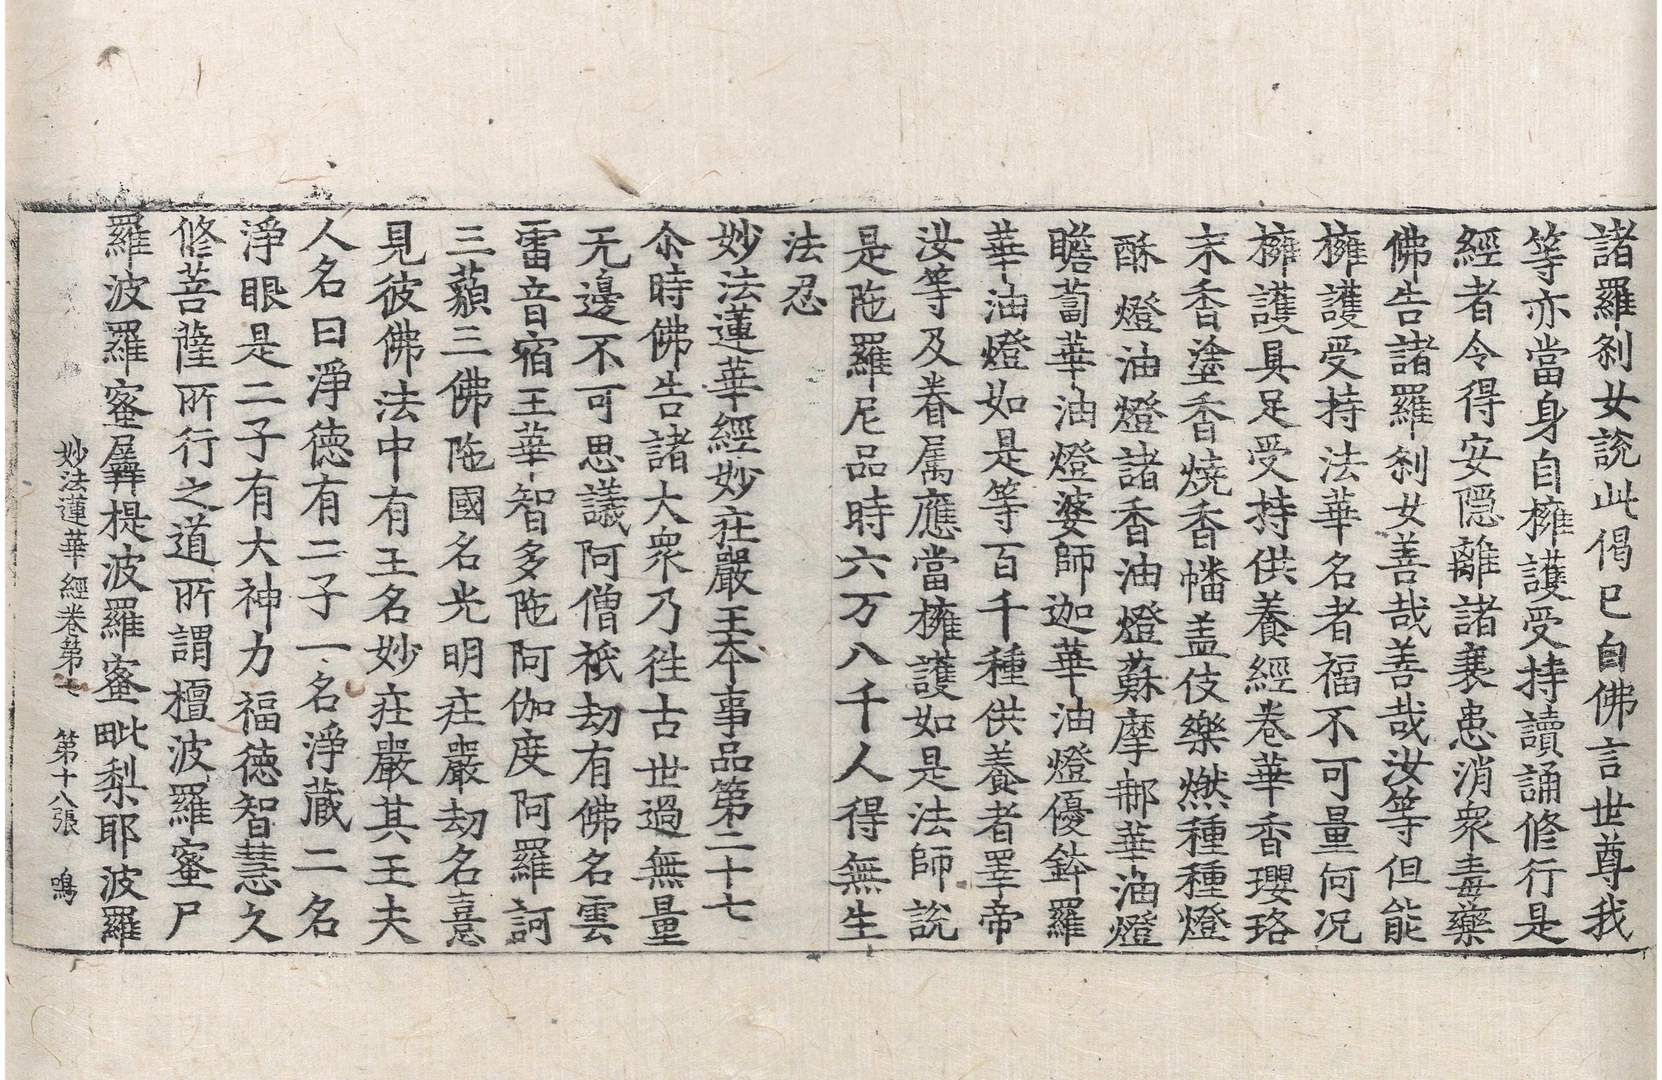 諸羅刹女說此偈已白佛言世尊我
等亦當身自擁護受持讀誦修行是
經者令得安隱離諸衰患消眾毒藥
佛告諸羅刹女善哉善哉汝等但能
擁護受持法華名者福不可量何况
擁護具足受持供養經卷華香瓔珞
末香塗香燒香幡盖伎樂燃種種燈
酥燈油燈諸香油燈蘇摩那華油燈
瞻蔔華油燈婆師迦華油燈優鉢羅
華油燈如是等百千種供養者睪帝
汝等及眷属應當擁護如是法師說
是陁羅尼品時六万八千人得無生
法忍
妙法蓮華經妙莊嚴王本事品第二十七
尒時佛告諸大衆乃徃古世過無量
无邊不可思議阿僧祇劫有佛名雲
雷音宿王華智多陁阿伽度阿羅訶
三藐三佛陁國名光明莊嚴劫名憙
見彼佛法中有王名妙莊嚴其王夫
人名曰淨德有二子一名淨藏二名
淨眼是二子有大神力福德智慧久
修菩薩所行之道所謂檀波羅蜜尸
羅波羅蜜羼提波羅蜜毗梨耶波羅
妙法蓮華經卷第七 第十八張 鳴